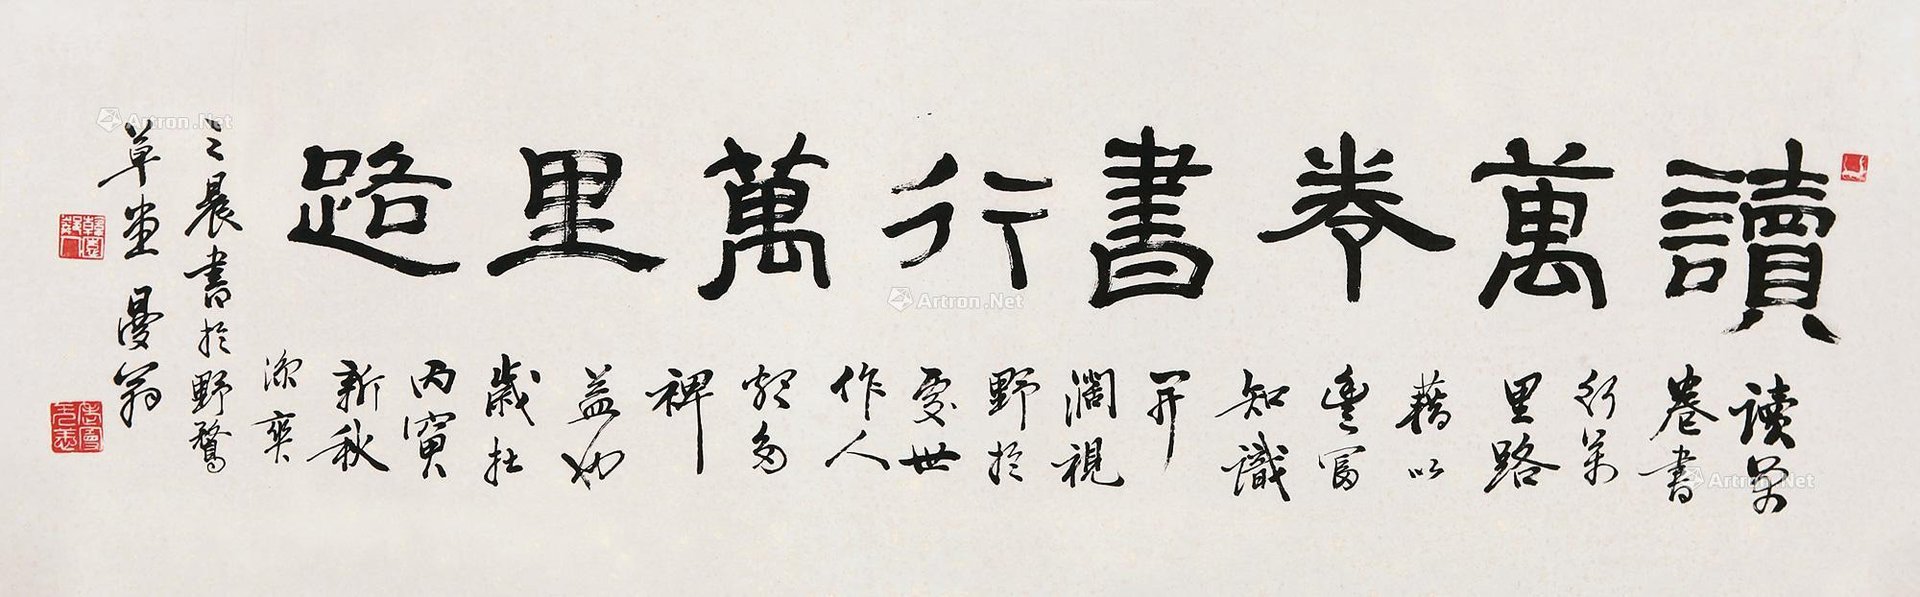 讀萬卷書行萬里路
读万
卷書
行万
里路
藉以
豐富
知識
開
濶視
野於
處世
作人
頗多
裨
益也
歲在
丙寅
新秋
涼爽
之晨書於野鶩
草堂 曼翁
Artron.Net
Artron.Net
Artron.Net